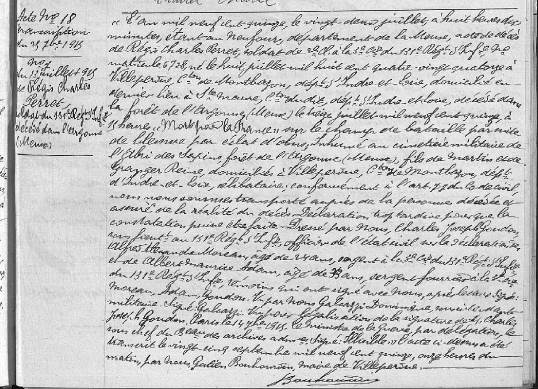 Acte N° 18
transcription
du 25 7bre 1915
N° 7
du 13 juillet 1915
de Régis Charles
Perrot
soldat du 131e Régt d'Inf.
décédé dans l'Argonne
(Meuse)
L'an mil neuf cent quinze, le vingt-deux juillet, à huit heures
minutes, étant au Neufour, département de la Meuse, acte de décès
de Régis Charles soldat de 2e Cl. à la Cie du 131e Régt d'Inf. N°
matricule 6728, né huit juillet mil huit cent quatre-vingt quatorze à
Villeperdue, Cton de Montbazon, dépt d'Indre et Loire, domicilié en
dernier lieu à Ste Maure, dudit, dépt d'Indre et Loire, décédé dans
la forêt de l'Argonne (Meuse) le treize juillet mil neuf cent quinze, à
heures, "Mort pour la France" sur le champ de bataille par suite
de blessure par éclat d'obus, inhumé au cimetière militaire de
l'Abri des Sapins, forêt de l'Argonne (Meuse), fils de Martin et de
Granger Reine, domiciliés à Villeperdue, Con de Montbazon, dépt
d'Indre et Loire, célibataire; conformément à l'art. 77 du Code civil,
nous nous sommes transporté auprès de la personne décédée et
assuré de la réalité du décès. Déclaration trop tardive pour que la
constatation puisse être faite. Dressé par Nous, Charles Joseph Gondon,
lieutenant au 131e Régt d'Inf., officier de l'état civil, sur la déclaration
Moreau, âgé de 24 ans, sergent à la Cie du 131e Régt d'Inf.
et de Albert Maurice Adam, âgé de ans, sergent fourrier à la
du 131e Régt d'Inf., témoins qui ont signé avec Nous, après lecture. Signé:
Moreau, Adam, Gondon. Vu par Nous Galazzi Dominique, sous-intendant
militaire. Signé Galazzi. Vu pour légalisation de la signature de M. Charles
Joseph Gondon, Paris le 14 7bre 1915. Le ministre de la Guerre, par délégation, le
sous chef du Bureau des archives admves. Signé: L'acte ci-dessus a été
transcrit le vingt-cinq septembre mil neuf cent quinze, onze heures du
matin, par Nous Bonhomme, maire de Villeperdue.
Bonhomme